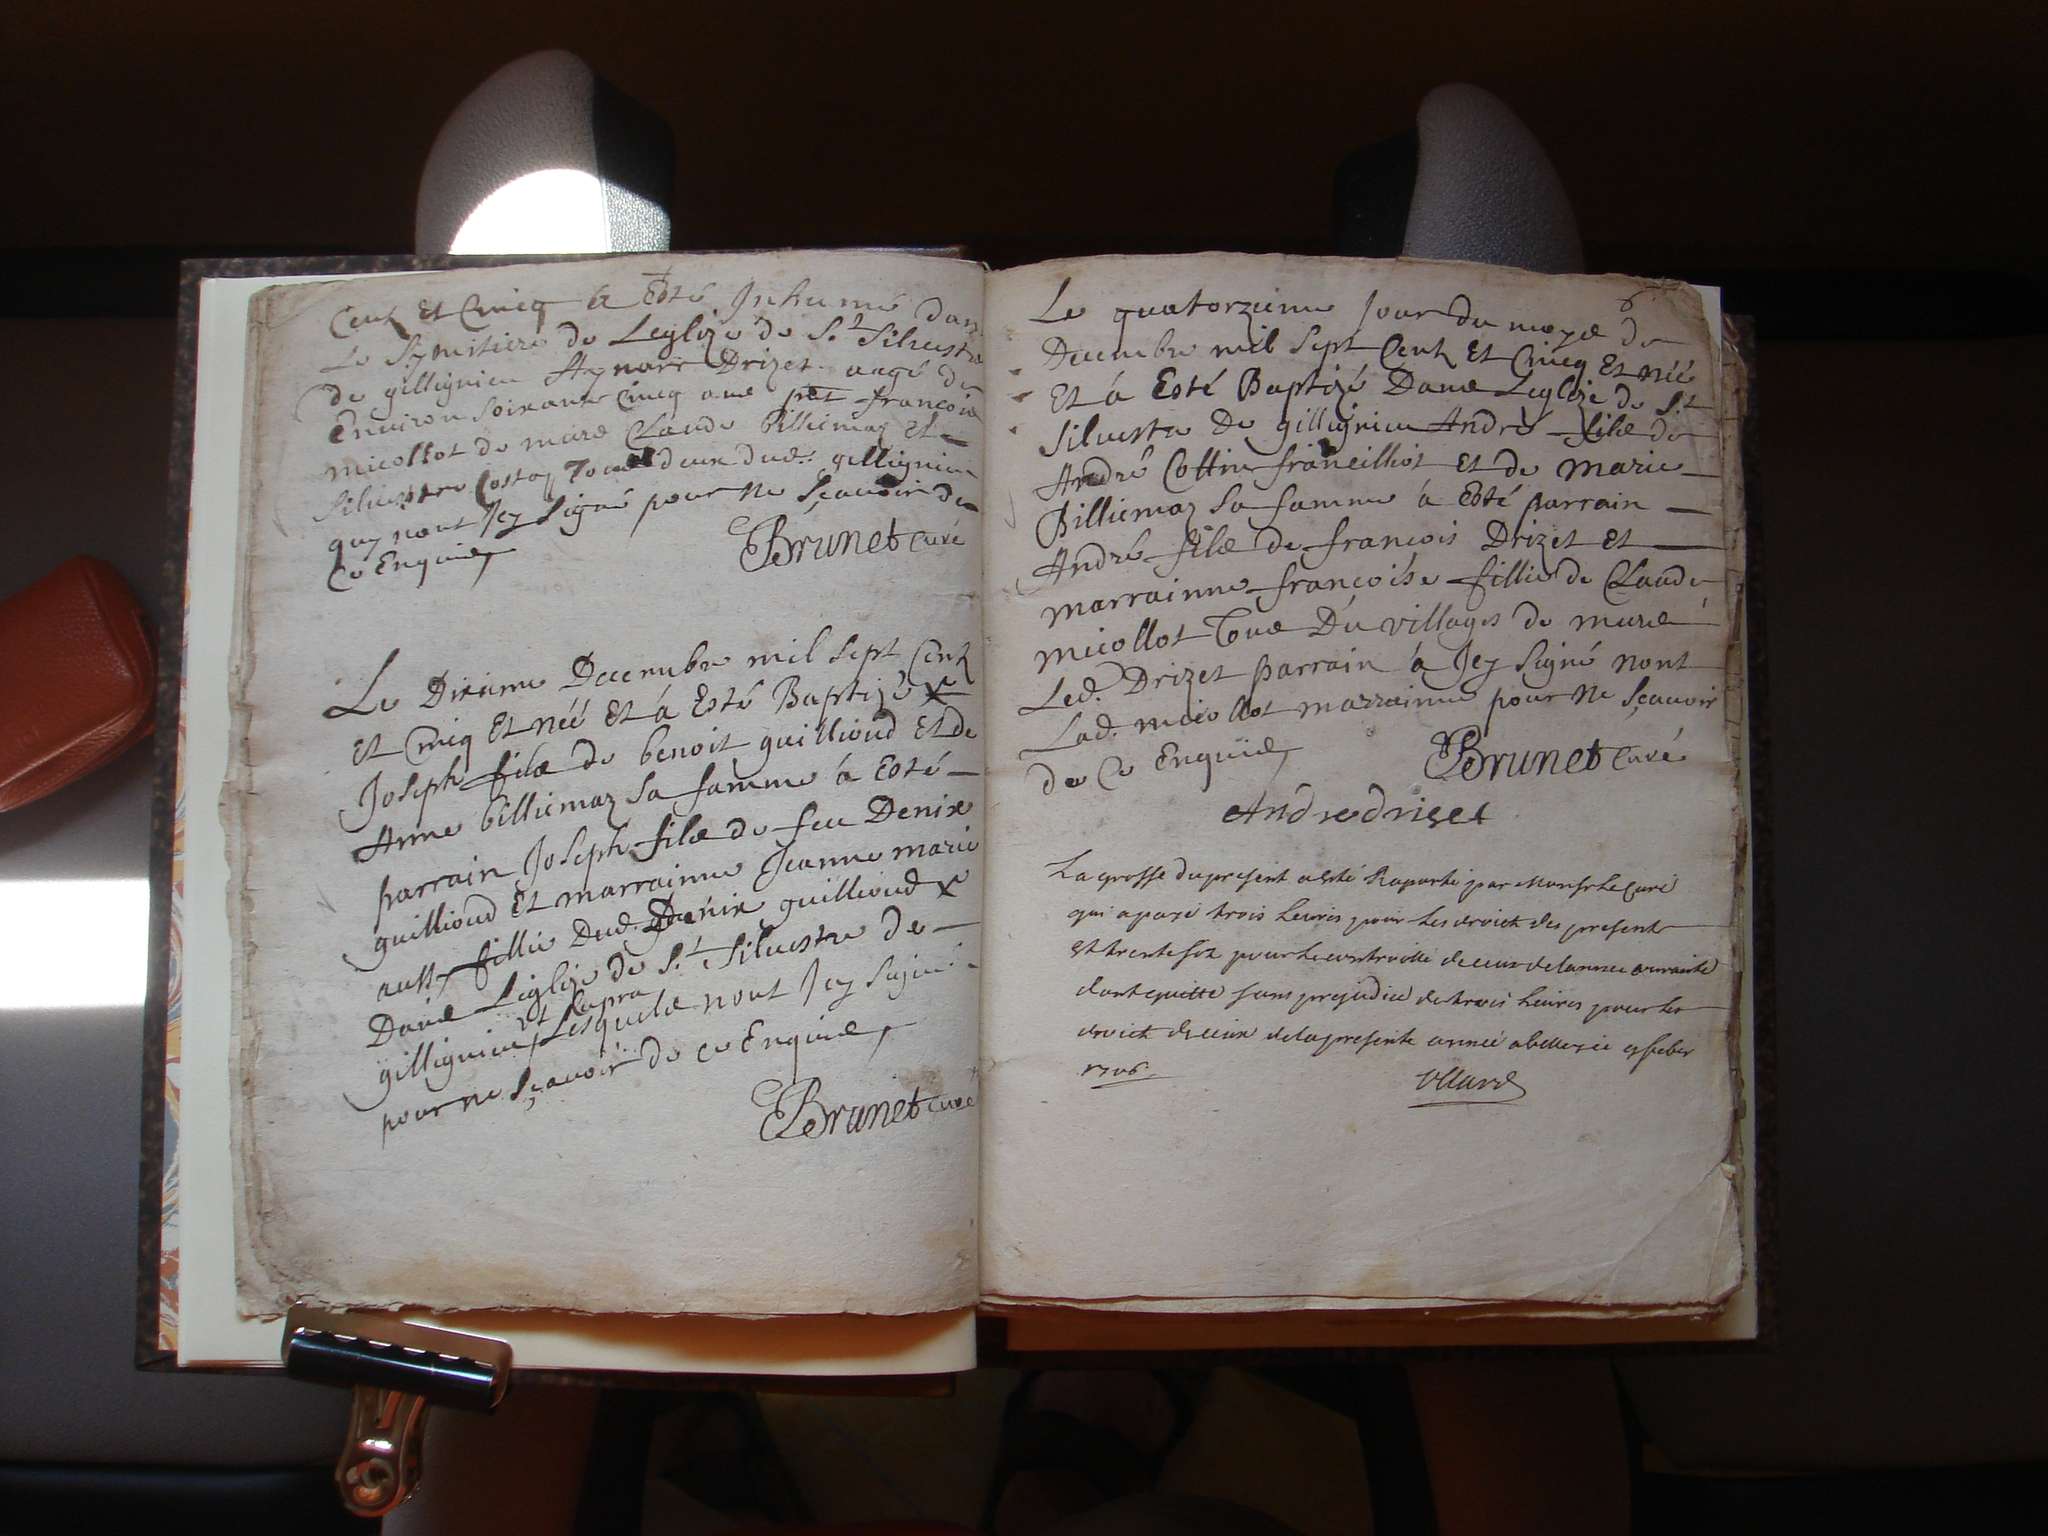 Cent Et Cinq à Esté Inhumé dans
Le Symitiere de Leglize de S.t Siluestre
de gillignieu Aynare Drizet aagé de
Environ soixante cinq ans pnt françois
micollot de mure Claude billiemaz Et
Siluestre Costaz Tous deux dud. gillignieu
quy nont Jcy Signé pour ne Sçauoir de
Ce Enquis
Brunet Curé
Le Dixieme Decembre mil sept Cent
Et Cinq Et néé Et à Esté Baptizé
Joseph fils de benoit guillioud Et de
Anne billiemaz Sa famme à Esté
parrain Joseph fils de feu Denix
guillioud Et marrainne Jeanne marie
aussy fillie Dud. Denix guillioud
Dans Leglize de S.t Siluestre de
gillignieu Lesquels nont Jcy Signé
pour ne Sçauoir de ce Enquis
Brunet Curé
6
Le quatorzieme Jour du moys de
Decembre mil Sept Cent Et Cinq Et néé
Et à Esté Baptizé Dans Leglize de S.t
Siluestre De gillignieu André fils de
André Cottin francilliot Et de Marie
Billiemaz Sa famme à Esté parrain
André fils de francois Drizet Et
marrainne françoise fillie de Claude
micollot Tous Du villages de mure
Led. Drizet parrain à Jcy Signé nont
Lad. micollot marrainne pour ne Sçauoir
de Ce Enquis
Brunet Curé
Andredriset
La grosse du present a esté Raporté par Monsr le Curé
qui a payé trois liures pour les droict des present
et trente six pour le controlle de ceux de lannee courante
dont quitte sans prejudice de trois liures pour les
droict de ceux de la presente année a feber
1706